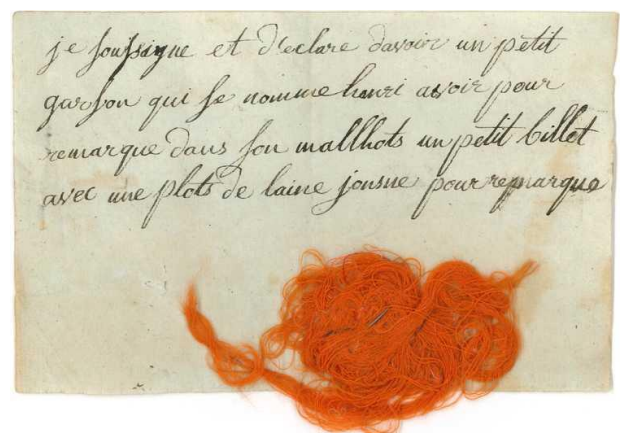 je soussigne et declare davoir un petit
garson qui se nomme henri avoir pour
remarque dans son mallhots un petit billet
avec une plots de laine jonsne pour remarque